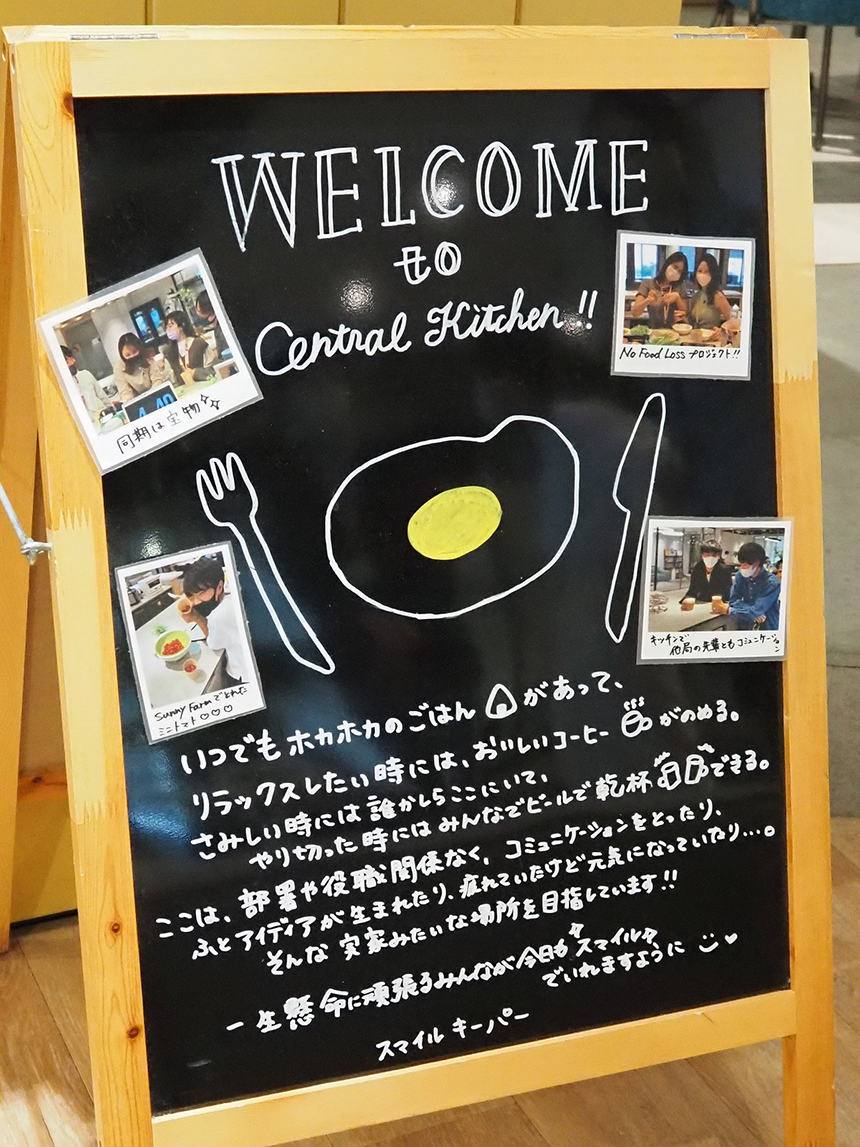 WELCOME
to
Central Kitchen!!
同期は宝物
No Food Loss プロジェクト!!
Sunny Farmでとれた
ミニトマト♡♡♡
キッチンで
他局の先輩ともコミュニケーション
いつでもホカホカのごはん🍙があって、
リラックスしたい時には、おいしいコーヒー☕がのめる。
さみしい時には誰かしらここにいて、
やり切った時にはみんなでビールで乾杯🍻できる。
ここは、部署や役職関係なく、コミュニケーションをとったり、
ふとアイディアが生まれたり、疲れていたけど元気になっていたり…。
そんな実家みたいな場所を目指しています!!
一生懸命に頑張るみんなが今日もスマイル
でいれますように
スマイルキーパー